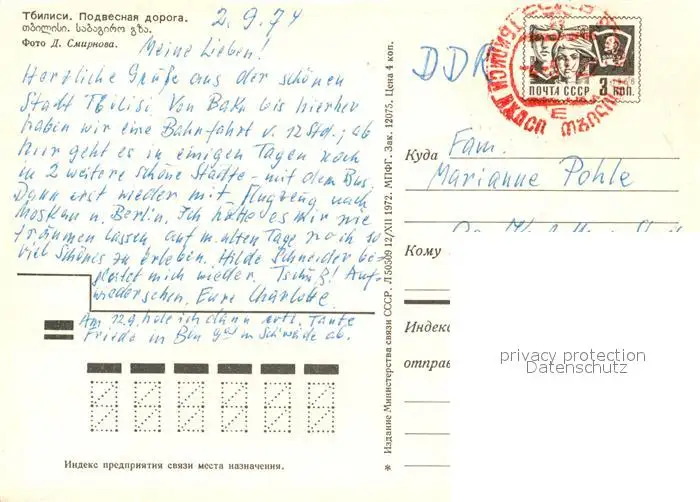 Тбилиси. Подвесная дорога.
თბილისი. საბაგირო გზა.
Фото Д. Смирнова.
2.9.74
Meine Lieben!
Herzliche Grüße aus der schönen
Stadt Tbilisi. Von Baku bis hierher
haben wir eine Bahnfahrt v. 12 Std.; ab
hier geht es in einigen Tagen noch
in 2 weitere schöne Städte - mit dem Bus.
Dann erst wieder mit Flugzeug nach
Moskau u. Berlin. Ich hätte es mir nie
träumen lassen, auf m. alten Tage noch so
viel Schönes zu erleben. Hilde Schneider be-
gleitet mich wieder. Tschüß! Auf-
wiedersehen. Eure Charlotte.
Am 12.9. hole ich dann evtl. Tante
Friede in Bln ab.
Индекс предприятия связи места назначения.
Издание Министерства связи СССР. Л 50509 12/XII 1972. МПФГ. Зак. 12075. Цена 4 коп.
*
DDR
ПОЧТА СССР 3 коп.
Куда
Fam.
Marianne Pohle
Кому
Индекс
отправ
privacy protection
Datenschutz